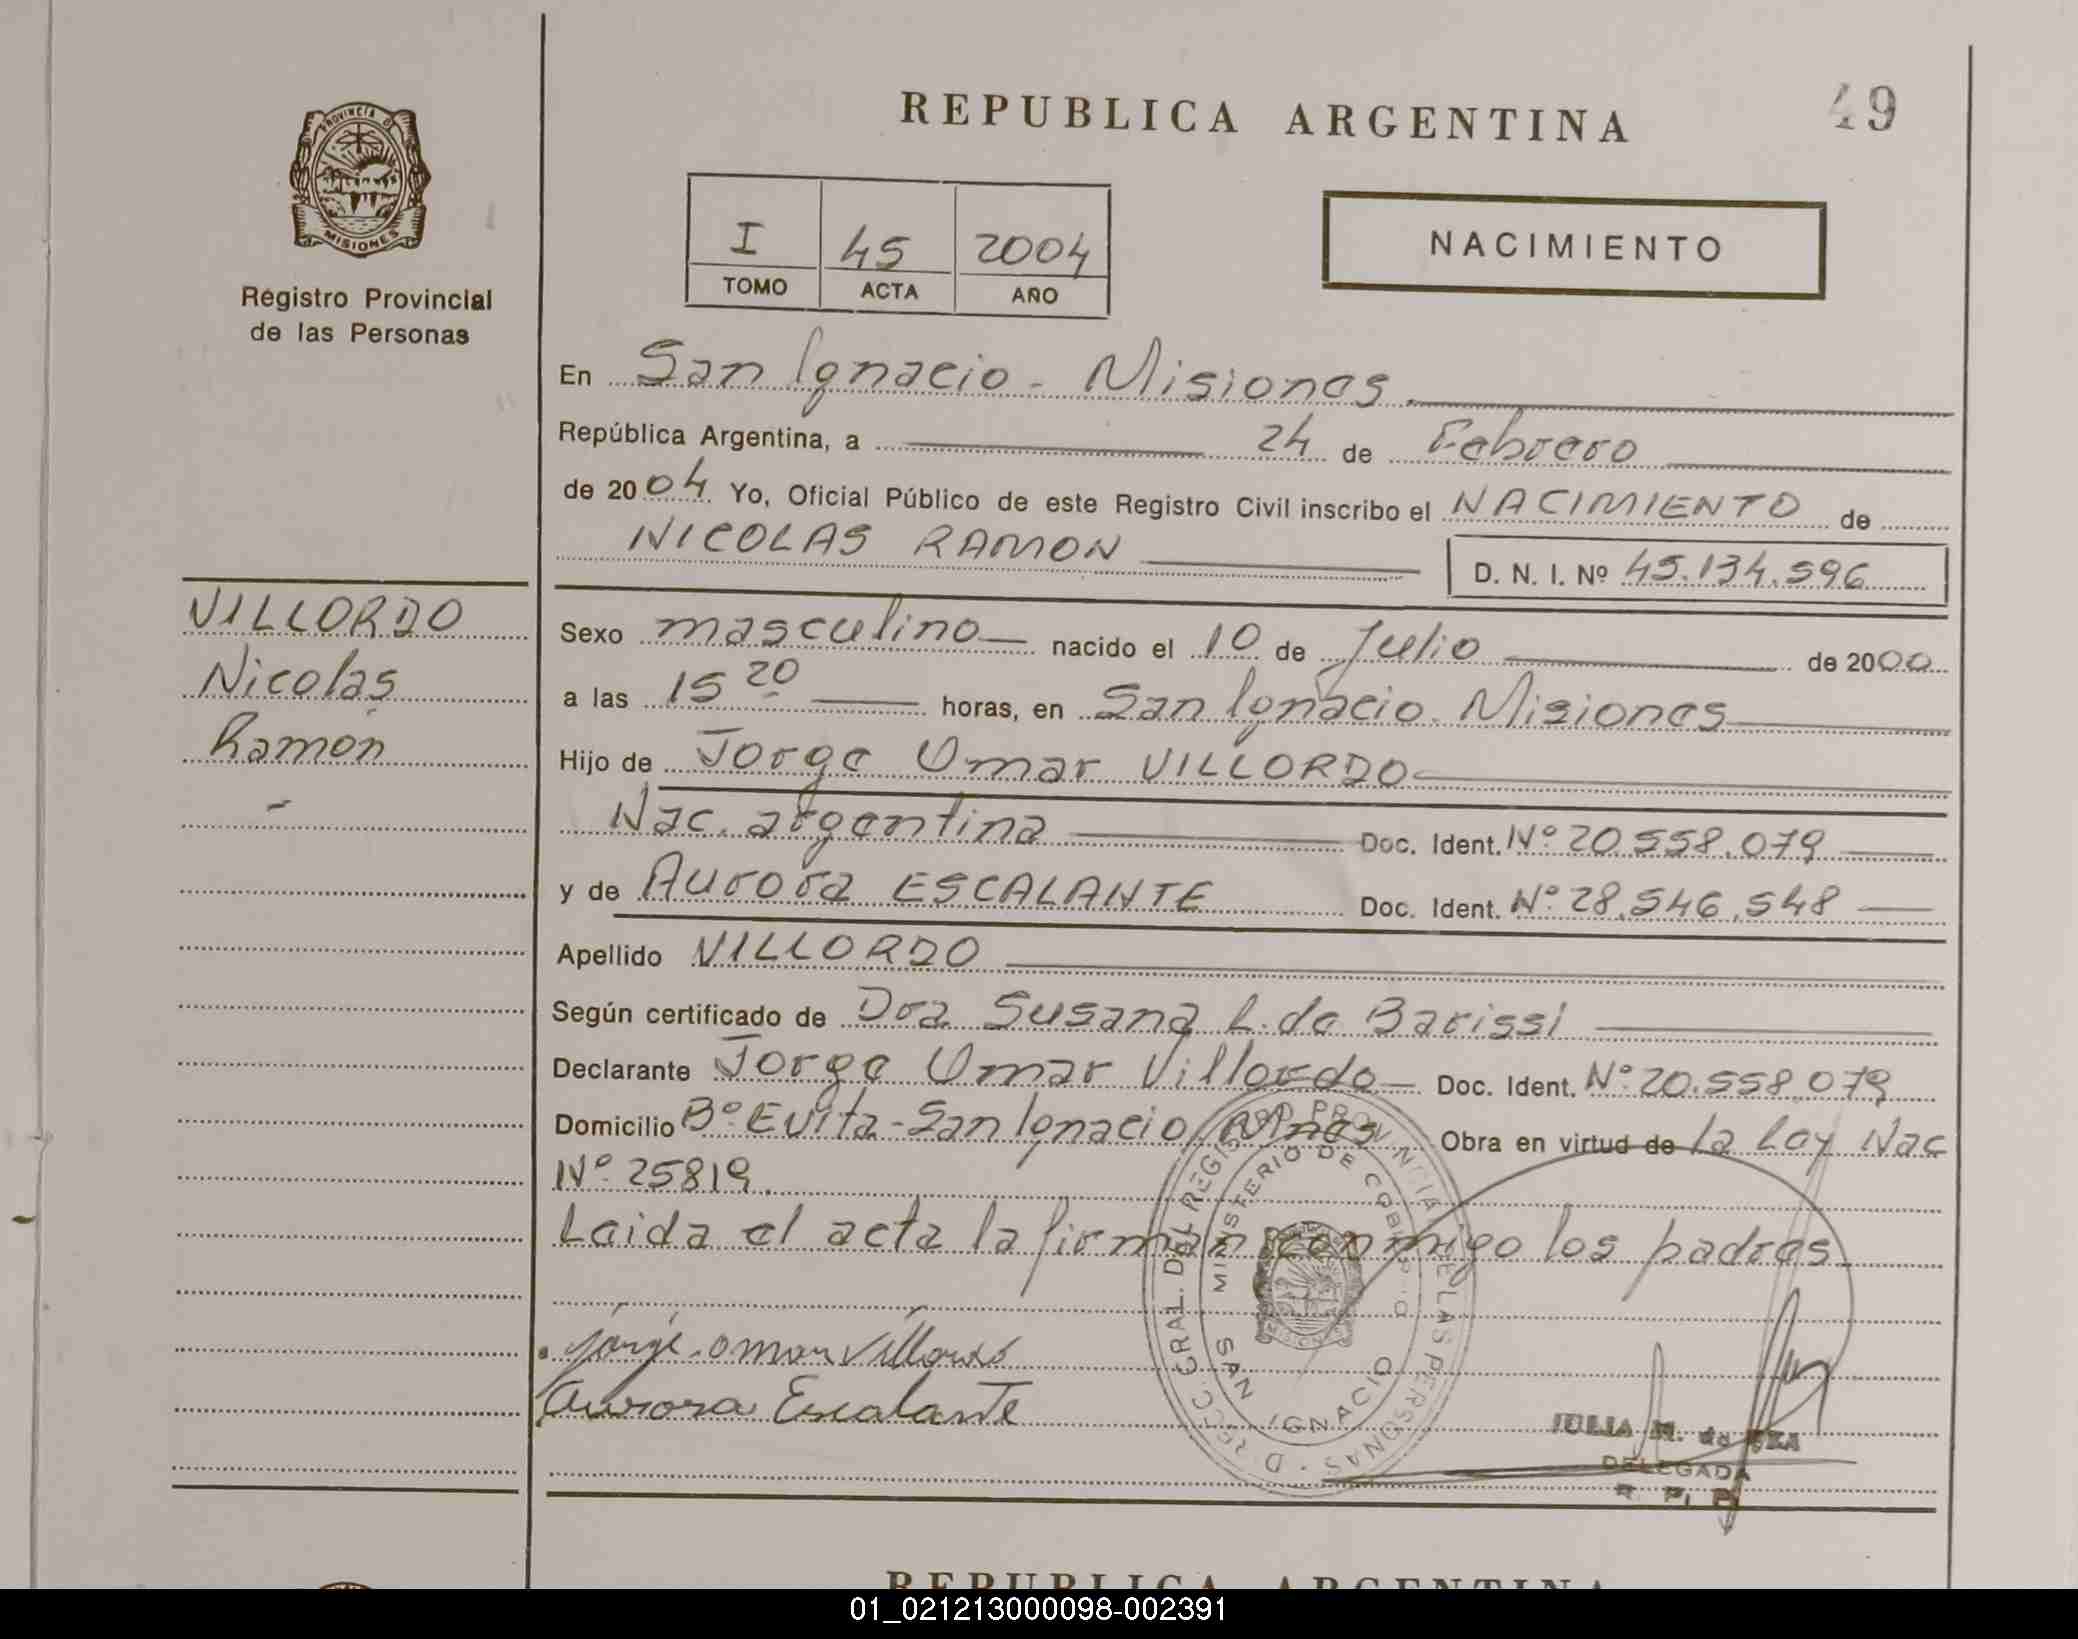 REPUBLICA ARGENTINA
49
PROVINCIA D
MISIONES
Registro Provincial
de las Personas
I 45 2004
TOMO ACTA AÑO
NACIMIENTO
En San Ignacio - Misiones.
República Argentina, a 24 de Febrero
de 2004. Yo, Oficial Público de este Registro Civil inscribo el NACIMIENTO de
NICOLAS RAMON
D. N. I. Nº 45.134.596
VILLORDO
Nicolas
Ramón
-
Sexo masculino nacido el 10 de Julio de 2000
a las 15 20 horas, en San Ignacio. Misiones
Hijo de Jorge Omar VILLORDO
Nac. argentina Doc. Ident. Nº 20.558.079
y de Aurora ESCALANTE Doc. Ident. Nº 28.546.548
Apellido VILLORDO
Según certificado de Dra Susana L. de Barissi
Declarante Jorge Omar Villordo Doc. Ident. Nº 20.558.079
Domicilio Bº Evita - San Ignacio Mnes Obra en virtud de la Ley Nac
Nº 25819.
Leida el acta la firman conmigo los padres
jorge omar villordo
Aurora Escalante
GRAL. DEL REGISTRO PROVINCIAL DE LAS PERSONAS
MINISTERIO DE GOBIERNO
SAN IGNACIO
MISIONES
JULIA M. de
DELEGADA
R. P. P.
REPUBLICA ARGENTINA
01_021213000098-002391